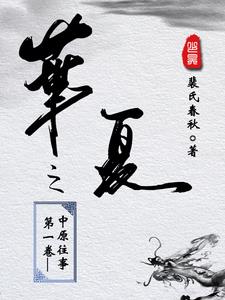 華夏之
中原往事
第一卷—
裴氏春秋◎著